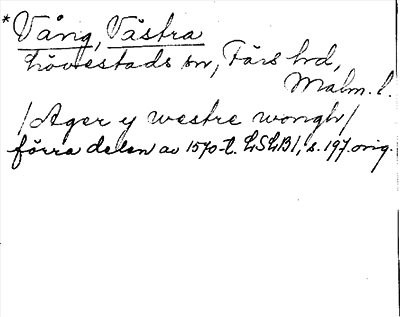 *Vång, Västra
Lövestads sn, Färs hd,
Malm. l.
/Ager y westre wongh/
förra delen av 1570-t. LSLB1, s. 197. orig.